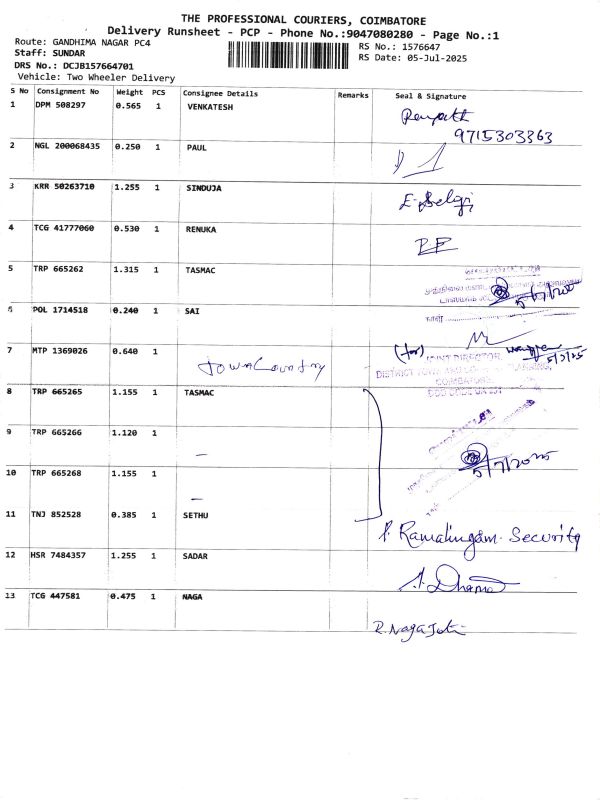 THE PROFESSIONAL COURIERS, COIMBATORE
Delivery Runsheet - PCP - Phone No.:9047080280 - Page No.:1
Route: GANDHIMA NAGAR PC4
RS No.: 1576647
Staff: SUNDAR
RS Date: 05-Jul-2025
DRS No.: DCJB157664701
Vehicle: Two Wheeler Delivery
S No Consignment No Weight PCS Consignee Details Remarks Seal & Signature
1 DPM 508297 0.565 1 VENKATESH
9715303363
2 NGL 200068435 0.250 1 PAUL
3 KRR 50263710 1.255 1 SINDUJA
4 TCG 41777060 0.530 1 RENUKA
5 TRP 665262 1.315 1 TASMAC
6 POL 1714518 0.240 1 SAI
7 MTP 1369026 0.640 1
Town Country
(for) JOINT DIRECTOR,
5/7/25
COIMBATORE
8 TRP 665265 1.155 1 TASMAC
9 TRP 665266 1.120 1
5/7/2025
10 TRP 665268 1.155 1
11 TNJ 852528 0.385 1 SETHU
Ramalingam. Security
12 HSR 7484357 1.255 1 SADAR
13 TCG 447581 0.475 1 NAGA
R. Naga Joti